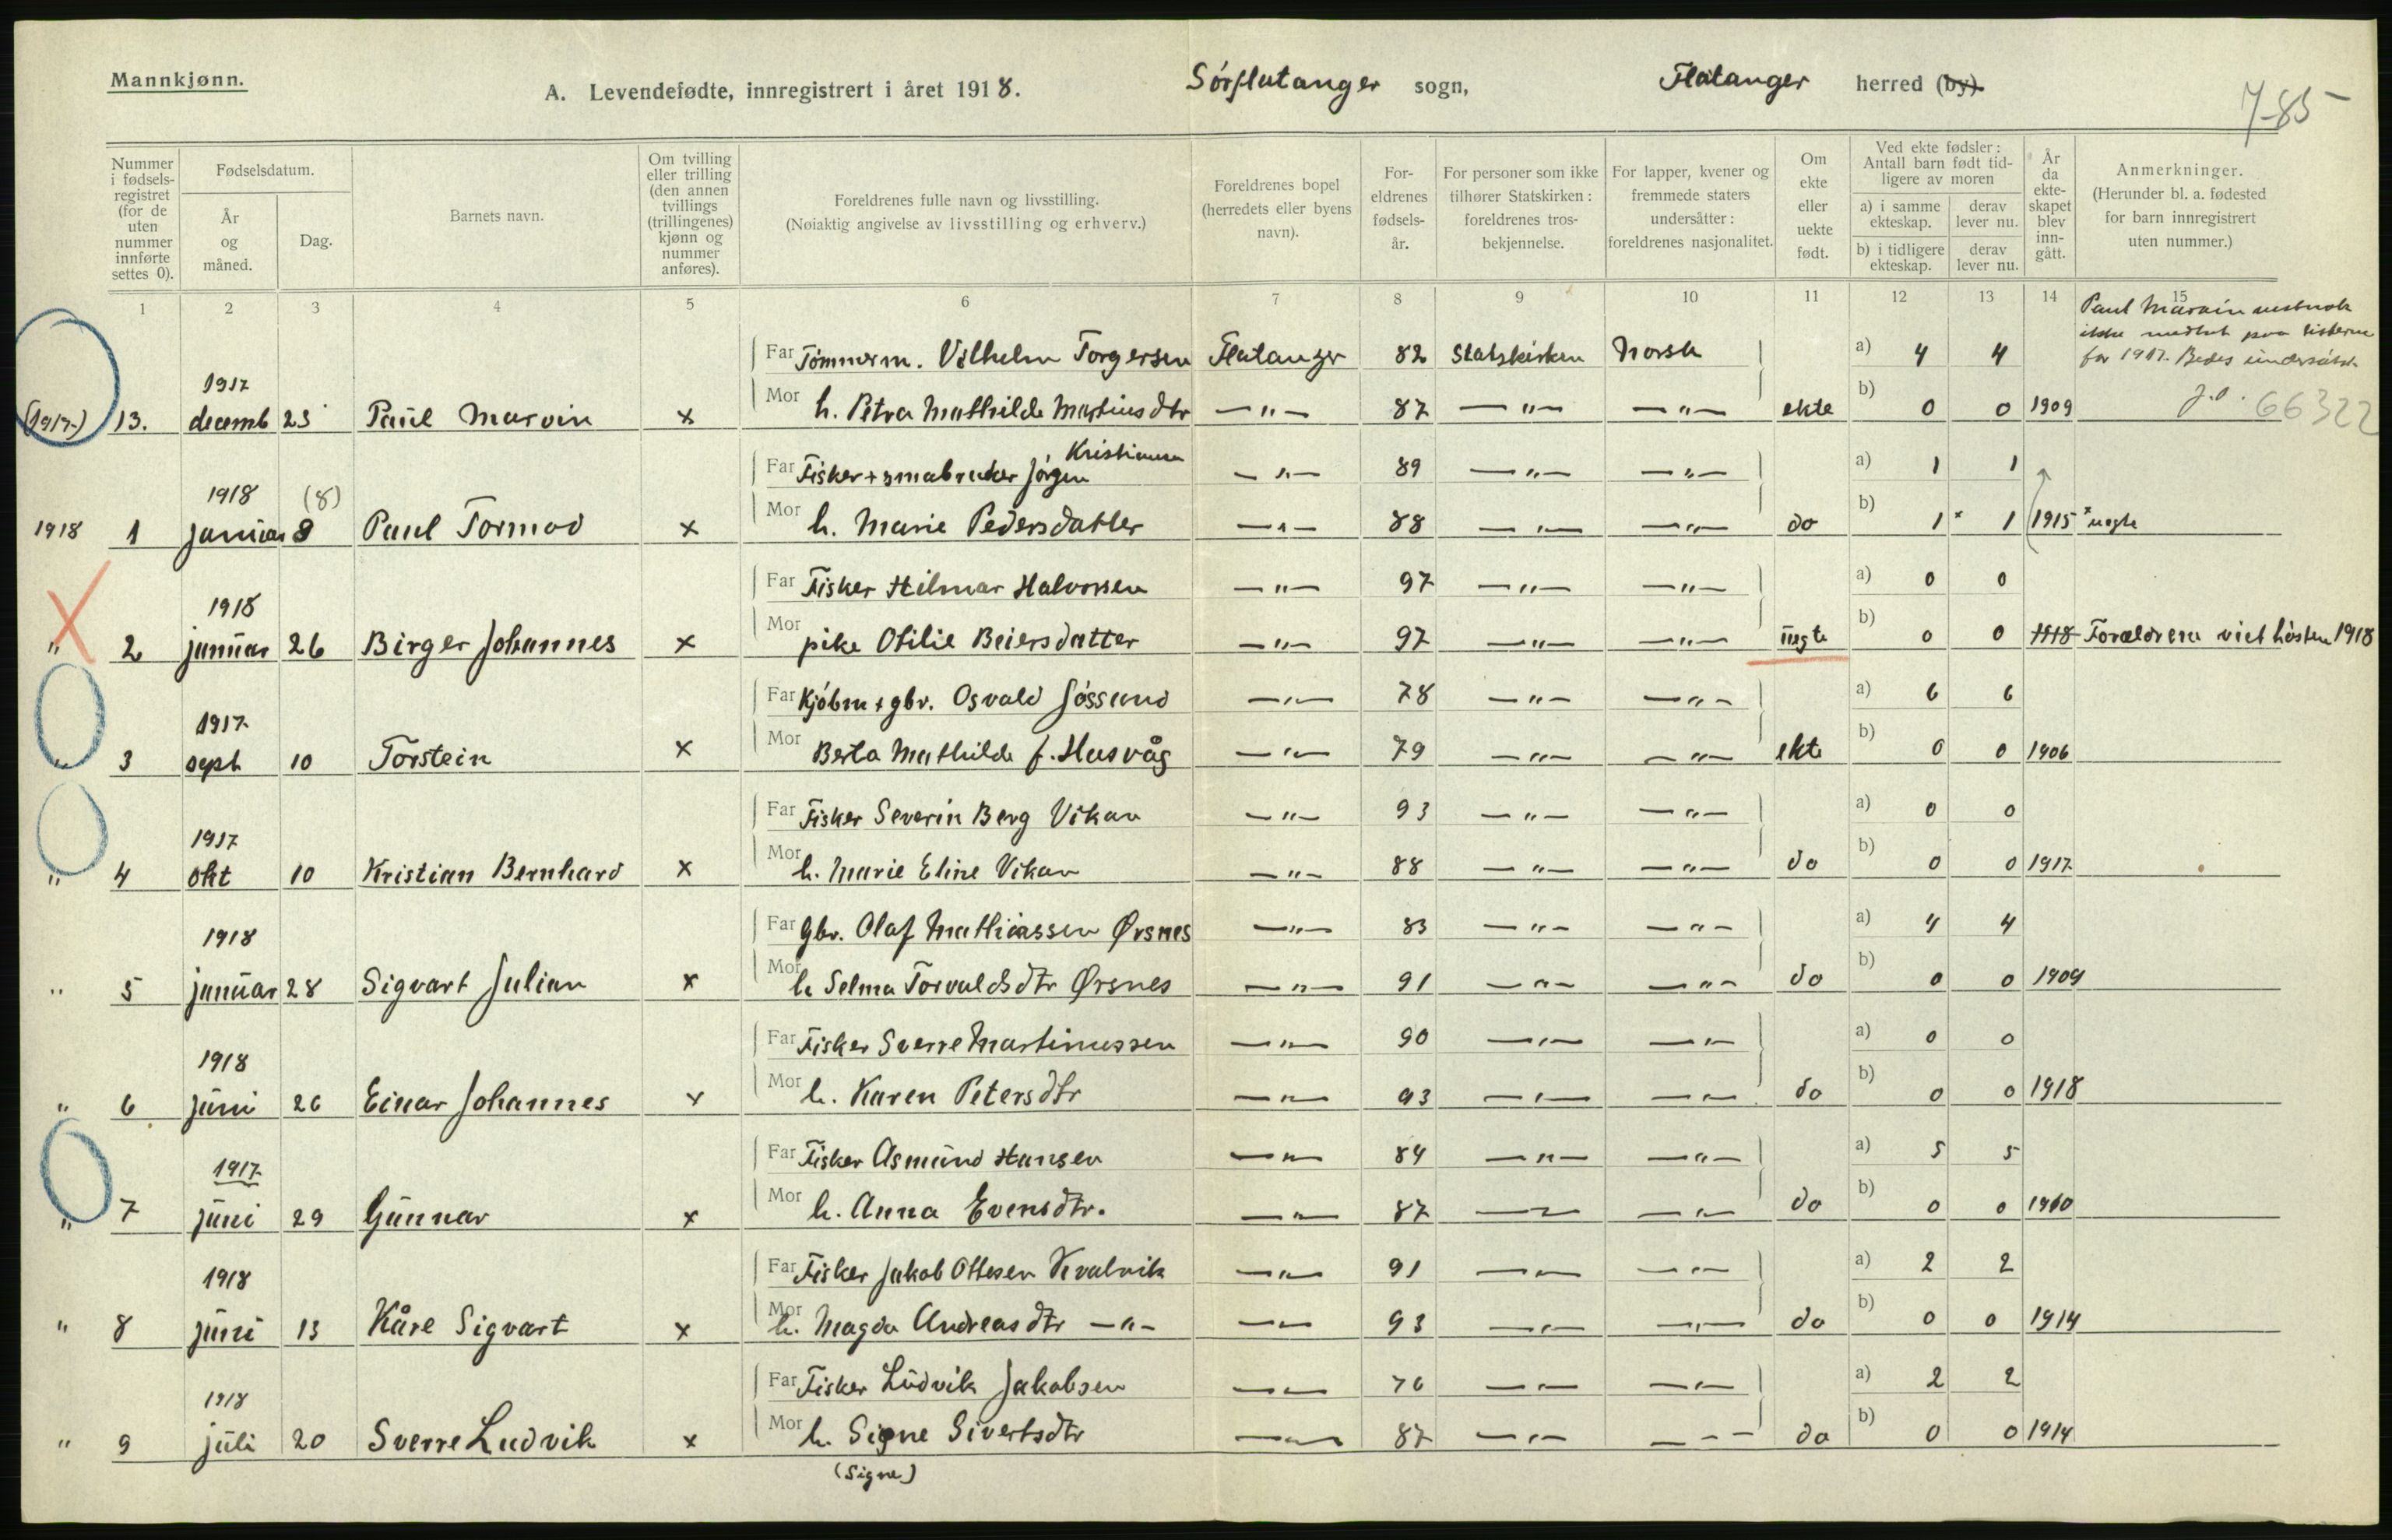 Mannkjønn.
A. Levendefødte, innregistrert i året 1918. Sørflatanger sogn, Flatanger herred (by).
7-85
Nummer i fødsels-registret (for de uten nummer innførte settes 0).
Fødselsdatum.
År og måned.
Dag.
Barnets navn.
Om tvilling eller trilling (den annen tvillings (trillingenes) kjønn og nummer anføres).
Foreldrenes fulle navn og livsstilling.
(Nøiaktig angivelse av livsstilling og erhverv.)
Foreldrenes bopel (herredets eller byens navn).
For-eldrenes fødsels-år.
For personer som ikke tilhører Statskirken: foreldrenes tros-bekjennelse.
For lapper, kvener og fremmede staters undersåtter: foreldrenes nasjonalitet.
Om ekte eller uekte født.
Ved ekte fødsler: Antall barn født tid-ligere av moren
a) i samme ekteskap.
derav lever nu.
b) i tidligere ekteskap.
derav lever nu.
År da ekte-skapet blev inn-gått.
Anmerkninger.
(Herunder bl. a. fødested for barn innregistrert uten nummer.)
1 2 3 4 5 6 7 8 9 10 11 12 13 14 15
Paul Marvin
for 1917. Bedes undersøkt
Far Tømmerm. Vilhelm Torgersen Flatanger 82 Statskirken Norsk a) 4 4
(1917) 13. 1917 decemb 23 Paul Marvin x Mor h. Petra Mathilde Martinsdtr —"— 87 —"— —"— ekte b) 0 0 1909 J.O. 66322
Far Fisker + småbruker Jørgen Kristiansen —"— 89 —"— —"— a) 1 1
1918 1 1918 januar 8 (8) Paul Tormod x Mor h. Marie Pedersdatter —"— 88 —"— —"— do b) 1 x 1 1915 x uegte
Far Fisker Hilmar Halvorsen —"— 97 —"— —"— a) 0 0
" 2 1918 januar 26 Birger Johannes x Mor pike Otilie Beiersdatter —"— 97 —"— —"— uegte b) 0 0 1918 Forældrene viet høsten 1918
Far Kjøbm + gbr. Osvald Jøssund —"— 78 —"— —"— a) 6 6
" 3 1917 sept 10 Torstein x Mor Berta Mathilde f. Husvåg —"— 79 —"— —"— ekte b) 0 0 1906
Far Fisker Severin Berg Vikan —"— 93 —"— —"— a) 0 0
" 4 1917 okt 10 Kristian Bernhard x Mor h. Marie Eline Vikan —"— 88 —"— —"— do b) 0 0 1917
Far Gbr. Olaf Mathiassen Ørsnes —"— 83 —"— —"— a) 4 4
" 5 1918 januar 28 Sigvart Julian x Mor h Selma Torvaldsdtr Ørsnes —"— 91 —"— —"— do b) 0 0 1909
Far Fisker Sverre Martinussen —"— 90 —"— —"— a) 0 0
" 6 1918 juni 26 Einar Johannes x Mor h. Karen Petersdtr —"— 93 —"— —"— do b) 0 0 1918
Far Fisker Asmund Hansen —"— 84 —"— —"— a) 5 5
" 7 1917 juni 29 Gunnar x Mor h. Anna Evensdtr. —"— 87 —"— —"— do b) 0 0 1910
Far Fisker Jakob Ottesen Kvalvik —"— 91 —"— —"— a) 2 2
" 8 1918 juni 13 Kåre Sigvart x Mor h. Magda Andreasdtr —"— —"— 93 —"— —"— do b) 0 0 1914
Far Fisker Ludvik Jakobsen —"— 76 —"— —"— a) 2 2
" 9 1918 juli 20 Sverre Ludvik x Mor h. Signe Sivertsdtr —"— 87 —"— —"— do b) 0 0 1914
(Signe)